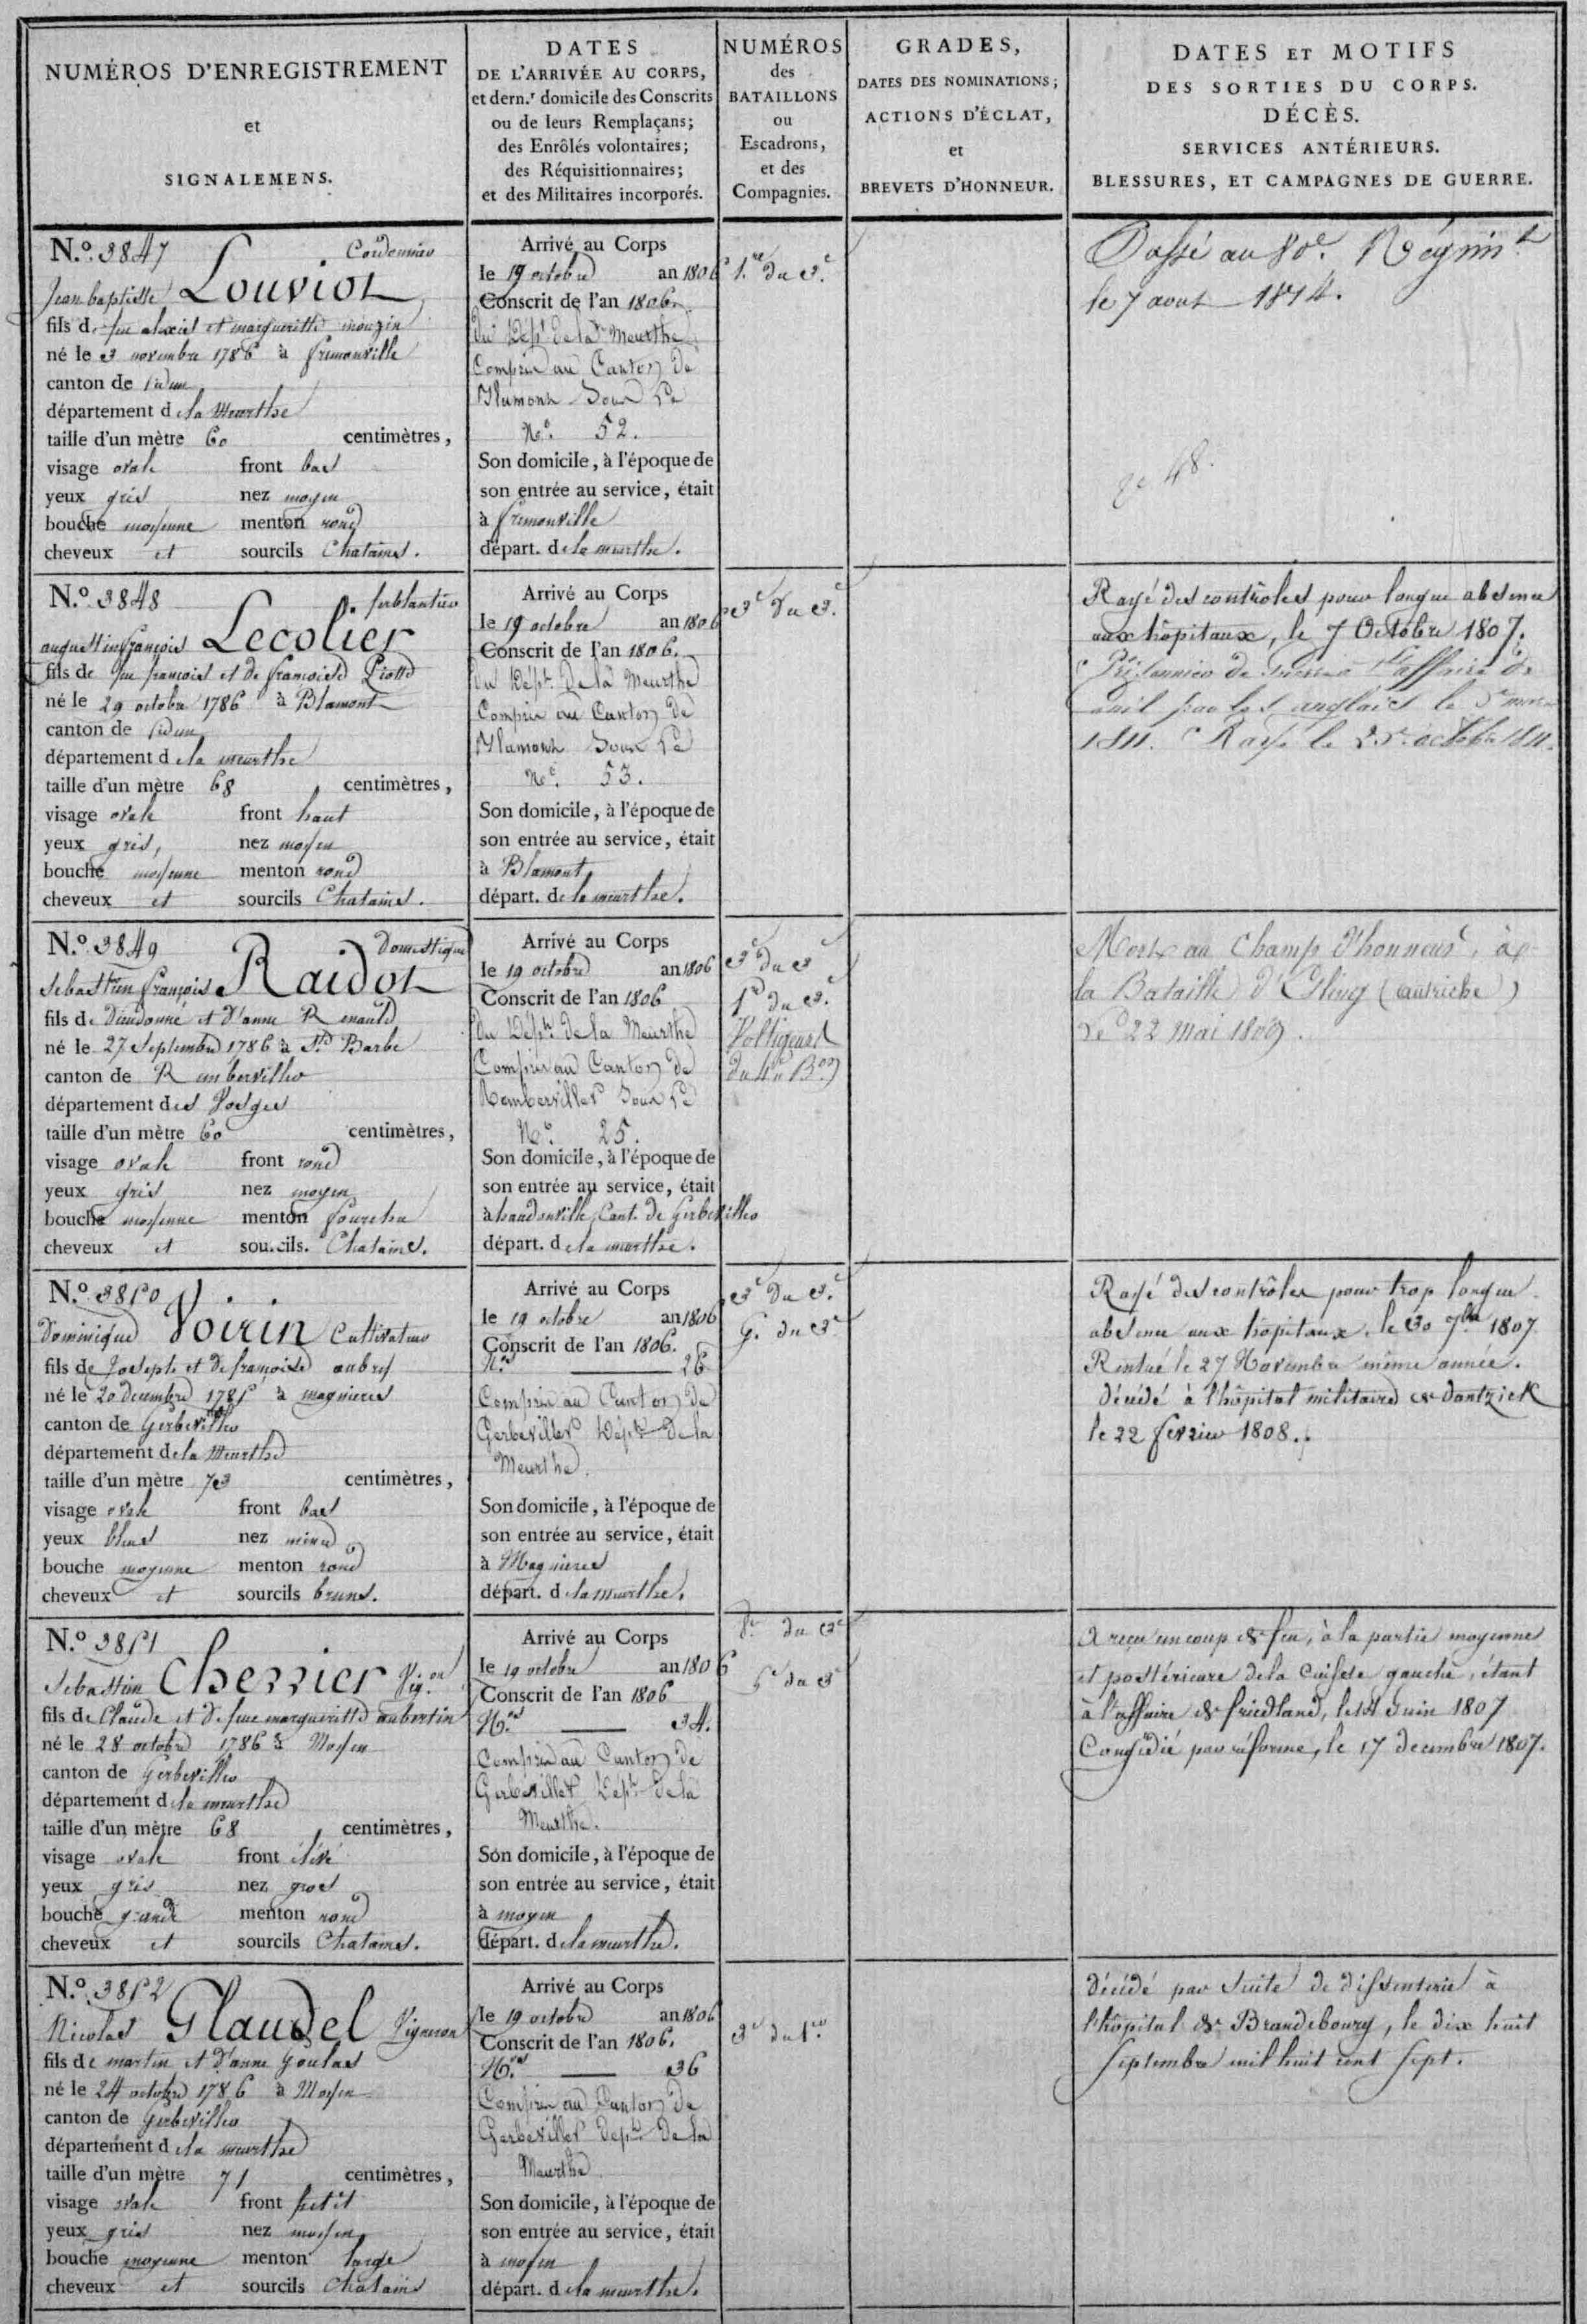 NUMÉROS D'ENREGISTREMENT
et
SIGNALEMENS.
DATES
DE L'ARRIVÉE AU CORPS,
et dern.r domicile des Conscrits
ou de leurs Remplaçans;
des Enrôlés volontaires;
des Réquisitionnaires;
et des Militaires incorporés.
NUMÉROS
des
BATAILLONS
ou
Escadrons,
et des
Compagnies.
GRADES,
DATES DES NOMINATIONS;
ACTIONS D'ÉCLAT,
et
BREVETS D'HONNEUR.
DATES ET MOTIFS
DES SORTIES DU CORPS.
DÉCÈS.
SERVICES ANTÉRIEURS.
BLESSURES, ET CAMPAGNES DE GUERRE.
N.o 3847 Cordonnier
Jean baptiste Louviot
fils de feu alexis et margueritte mougin
né le 3 novembre 1786 à fremonville
canton de
département de la Meurthe
taille d'un mètre 60 centimètres,
visage ovale front bas
yeux gris nez moyen
bouche moyenne menton rond
cheveux et sourcils Chatains.
Arrivé au Corps
le 19 octobre an 1806
Conscrit de l'an 1806.
du Dépt. de la Meurthe
Compris au Canton de
Blamont Sous le
No. 52.
Son domicile, à l'époque de
son entrée au service, était
à fremonville
départ. de la meurthe.
1.re du 3.e
Passé au 80e. Régim.t
le 7 aout 1814.
N.o 3848 ferblantier
augustin françois Lecolier
fils de feu françois et de françoise Piotte
né le 29 octobre 1786 à Blamont
canton de
département de la meurthe
taille d'un mètre 68 centimètres,
visage ovale front haut
yeux gris, nez moyen
bouche moyenne menton rond
cheveux et sourcils Chatains.
Arrivé au Corps
le 19 octobre an 1806
Conscrit de l'an 1806.
du Dépt. de la Meurthe
Compris au Canton de
Blamont Sous le
No. 53.
Son domicile, à l'époque de
son entrée au service, était
à Blamont
départ. de la meurthe.
3e du 3.e
Rayé des contrôles pour longue absence
aux hôpitaux, le 7 Octobre 1807.
Prisonnier de Guerre à l'affaire de
par les anglais le 5 mars
1811. Rayé le 25 octobre 1811.
N.o 3849 Domestique
Sebastien françois Raidot
fils de Dieudonné et d'anne Renauld
né le 27 Septembre 1786 à Ste. Barbe
canton de Rambervillers
département des Vosges
taille d'un mètre 60 centimètres,
visage ovale front rond
yeux gris nez moyen
bouche moyenne menton fourchu
cheveux et sourcils. Chatains.
Arrivé au Corps
le 19 octobre an 1806
Conscrit de l'an 1806
du Dépt. de la Meurthe
Compris au Canton de
Remberviller Sous le
No. 25.
Son domicile, à l'époque de
son entrée au service, était
à haudonville Cant. de Gerbeviller
départ. de la meurthe.
3e du 3e
1e du 3.e
Voltigeurs
du 4e B.on
Mort au Champ d'honneur, à
la Bataille d'Esling (autriche)
le 22 Mai 1809.
N.o 3850
Dominique Voirin Cultivateur
fils de Joseph et de françoise aubry
né le 20 decembre 1785 à magnieres
canton de Gerbeviller
département de la Meurthe
taille d'un mètre 73 centimètres,
visage ovale front bas
yeux bleus nez mince
bouche moyenne menton rond
cheveux et sourcils bruns.
Arrivé au Corps
le 19 octobre an 1806
Conscrit de l'an 1806.
No. 26
Compris au Canton de
Gerbeviller Dépt. de la
Meurthe.
Son domicile, à l'époque de
son entrée au service, était
à Magnieres
départ. de la meurthe.
3e du 3.e
G. du 3e
Rayé des contrôles pour trop longue
absence aux hôpitaux, le 30 7bre 1807
Rentré le 27 Novembre même année.
Décédé à l'hôpital militaire de dantzick
le 22 fevrier 1808.
N.o 3851
Sebastien Cherrier Vig.on
fils de Claude et de feue margueritte aubertin
né le 28 octobre 1786 à Moyen
canton de Gerbeviller
département de la meurthe
taille d'un mètre 68 centimètres,
visage ovale front élévé
yeux gris nez gros
bouche grande menton rond
cheveux et sourcils Chatains.
Arrivé au Corps
le 19 octobre an 1806
Conscrit de l'an 1806
No. 34.
Compris au Canton de
Gerbeviller Dépt. de la
Meurthe.
Son domicile, à l'époque de
son entrée au service, était
à moyen
départ. de la meurthe.
8e du 3e
5e du 3e
A reçu un coup de feu, à la partie moyenne
et postérieure de la Cuisse gauche, étant
à l'affaire de friedland, le 14 Juin 1807
Congédié par réforme, le 17 decembre 1807.
N.o 3852
Nicolas Glaudel Vigneron
fils de martin et d'anne Goulas
né le 24 octobre 1786 à Moyen
canton de Gerbeviller
département de la meurthe
taille d'un mètre 71 centimètres,
visage ovale front petit
yeux gris nez moyen
bouche moyenne menton large
cheveux et sourcils Chatains
Arrivé au Corps
le 19 octobre an 1806
Conscrit de l'an 1806.
No. 36
Compris au Canton de
Gerbeviller dept. de la
Meurthe
Son domicile, à l'époque de
son entrée au service, était
à moyen
départ. de la meurthe.
3e du 1er
Décédé par suite de dissenterie à
l'hôpital de Brandebourg, le dix huit
Septembre mil huit cent Sept.